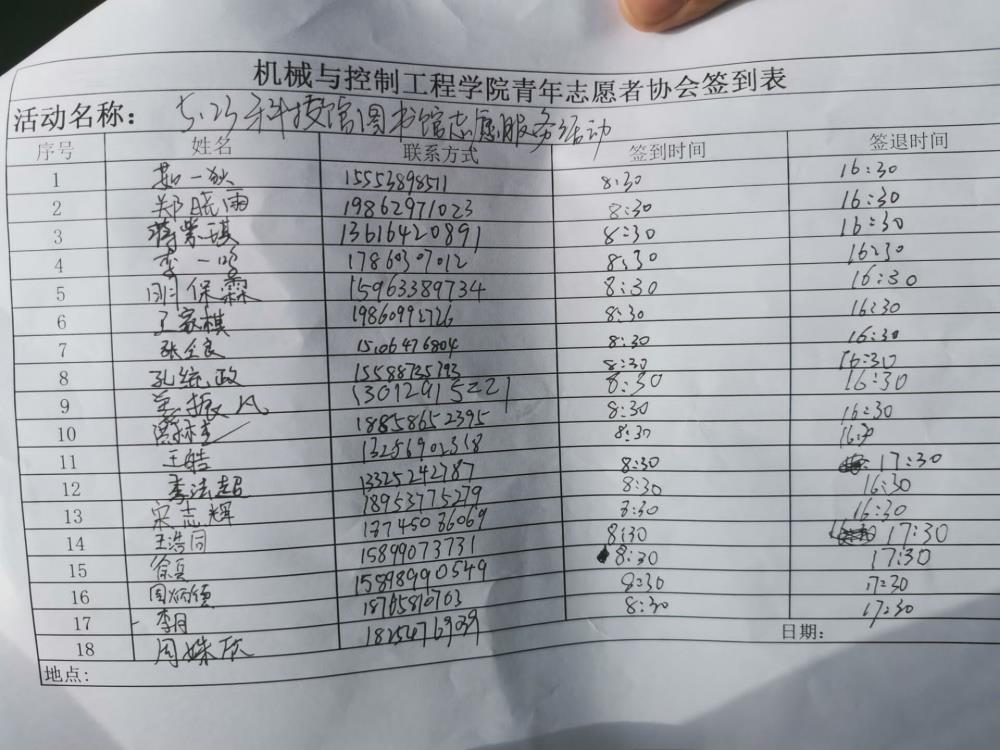 机械与控制工程学院青年志愿者协会签到表
活动名称: 5.23科技馆图书馆志愿服务活动
序号 姓名 联系方式 签到时间 签退时间
1 茹一狄 15553898511 8:30 16:30
2 郑眠雨 19862971023 8:30 16:30
3 蒋紫琪 13616420891 8:30 16:30
4 李一 17860307012 8:30 16:30
5 保霖 15963389734 8:30 16:30
6 丁家棋 19860992726 8:30 16:30
7 张全良 15106476804 8:30 16:30
8 孔统政 15588735793 8:30 16:30
9 振 13012915221 8:30 16:30
10 18858652395 8:30 16:30
11 王皓 13256902318 8:30 16:3
12 李法超 13325242787 8:30 17:30
13 宋志辉 18953775279 8:30 16:30
14 王浩同 17745036069 8:30 16:30
15 徐真 15899073731 8:30 17:30
16 周炳 15898990549 8:30 17:30
17 李月 18765810703 8:30 17:30
18 周姝欣 18254769039 8:30 17:30
地点: 日期: